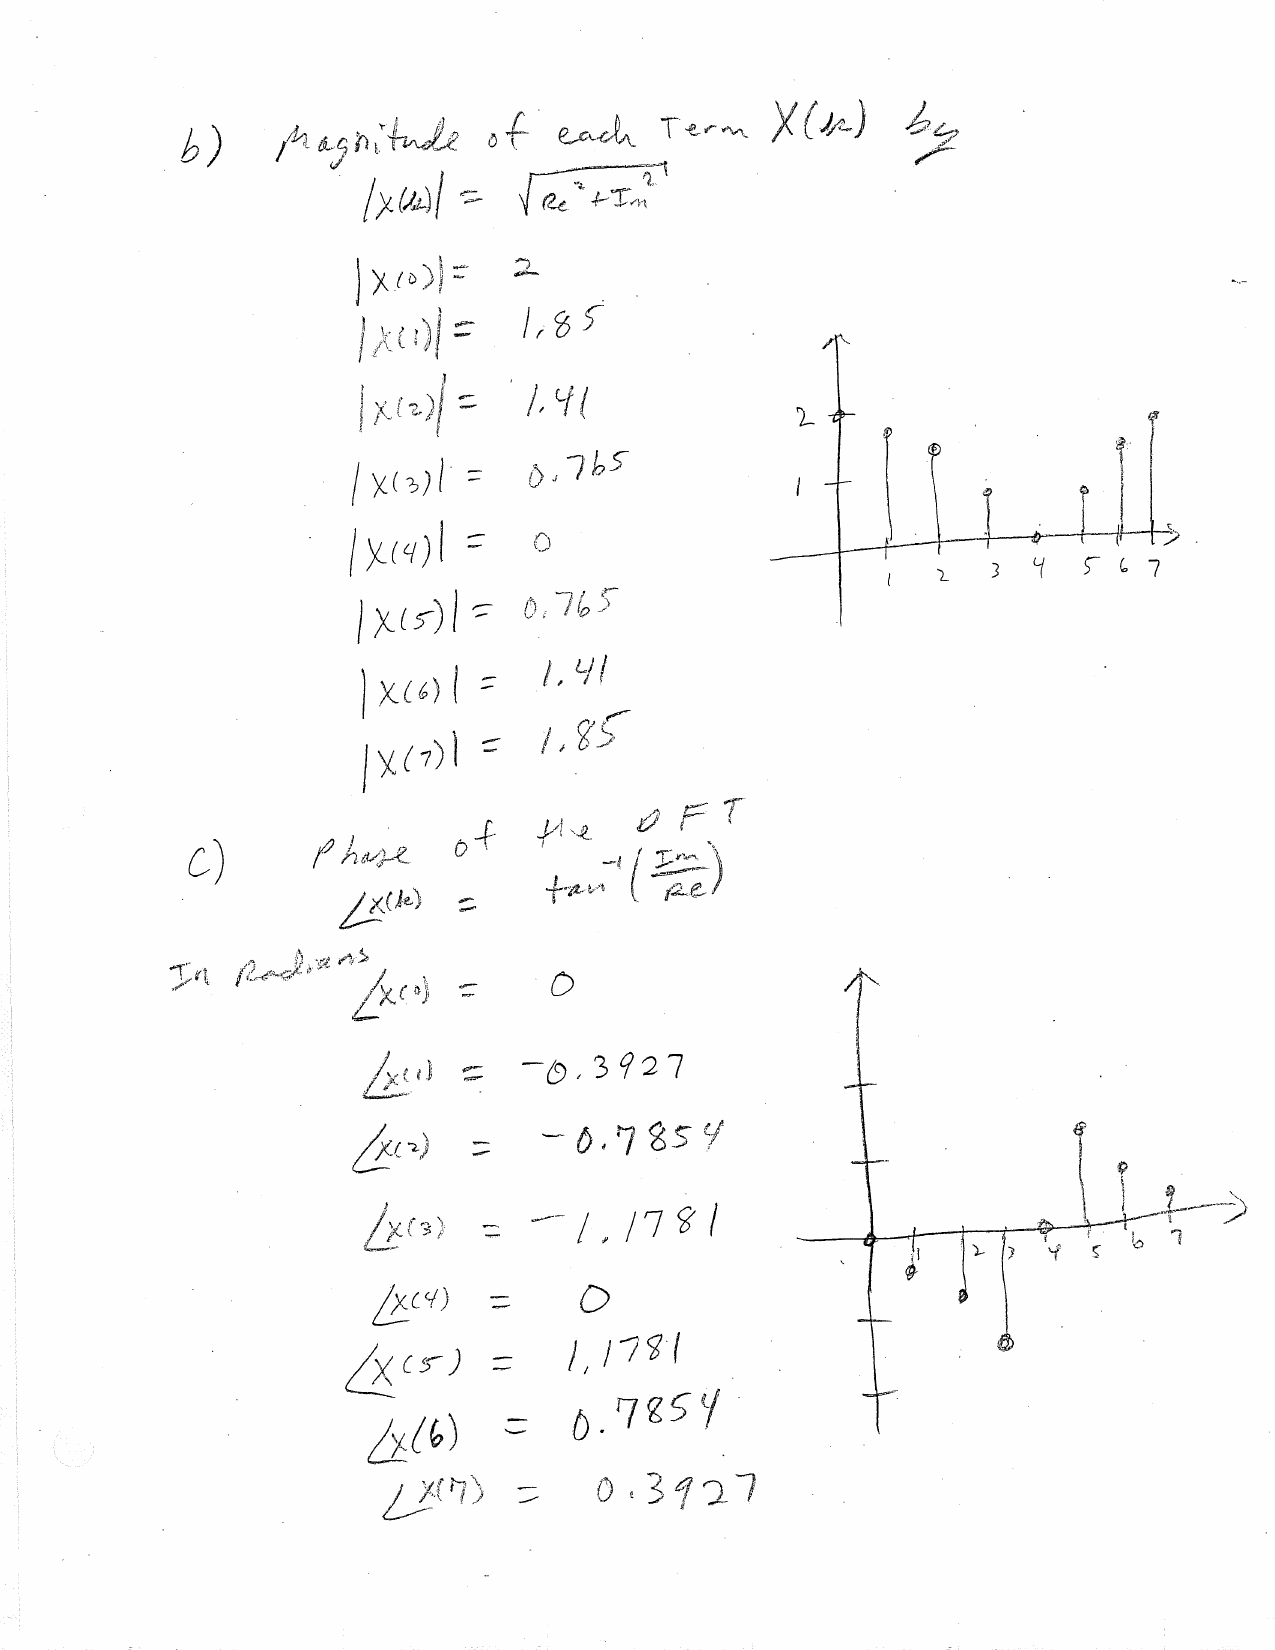 b) Magnitude of each Term X(k) by
|X(k)| = √(Re² + Im²)
|X(0)| = 2
|X(1)| = 1.85
|X(2)| = 1.41
|X(3)| = 0.765
|X(4)| = 0
|X(5)| = 0.765
|X(6)| = 1.41
|X(7)| = 1.85
2
1
1 2 3 4 5 6 7
c) Phase of the DFT
∠X(k) = tan⁻¹(Im/Re)
In Radians
∠X(0) = 0
∠X(1) = -0.3927
∠X(2) = -0.7854
∠X(3) = -1.1781
∠X(4) = 0
∠X(5) = 1.1781
∠X(6) = 0.7854
∠X(7) = 0.3927
1 2 3 4 5 6 7